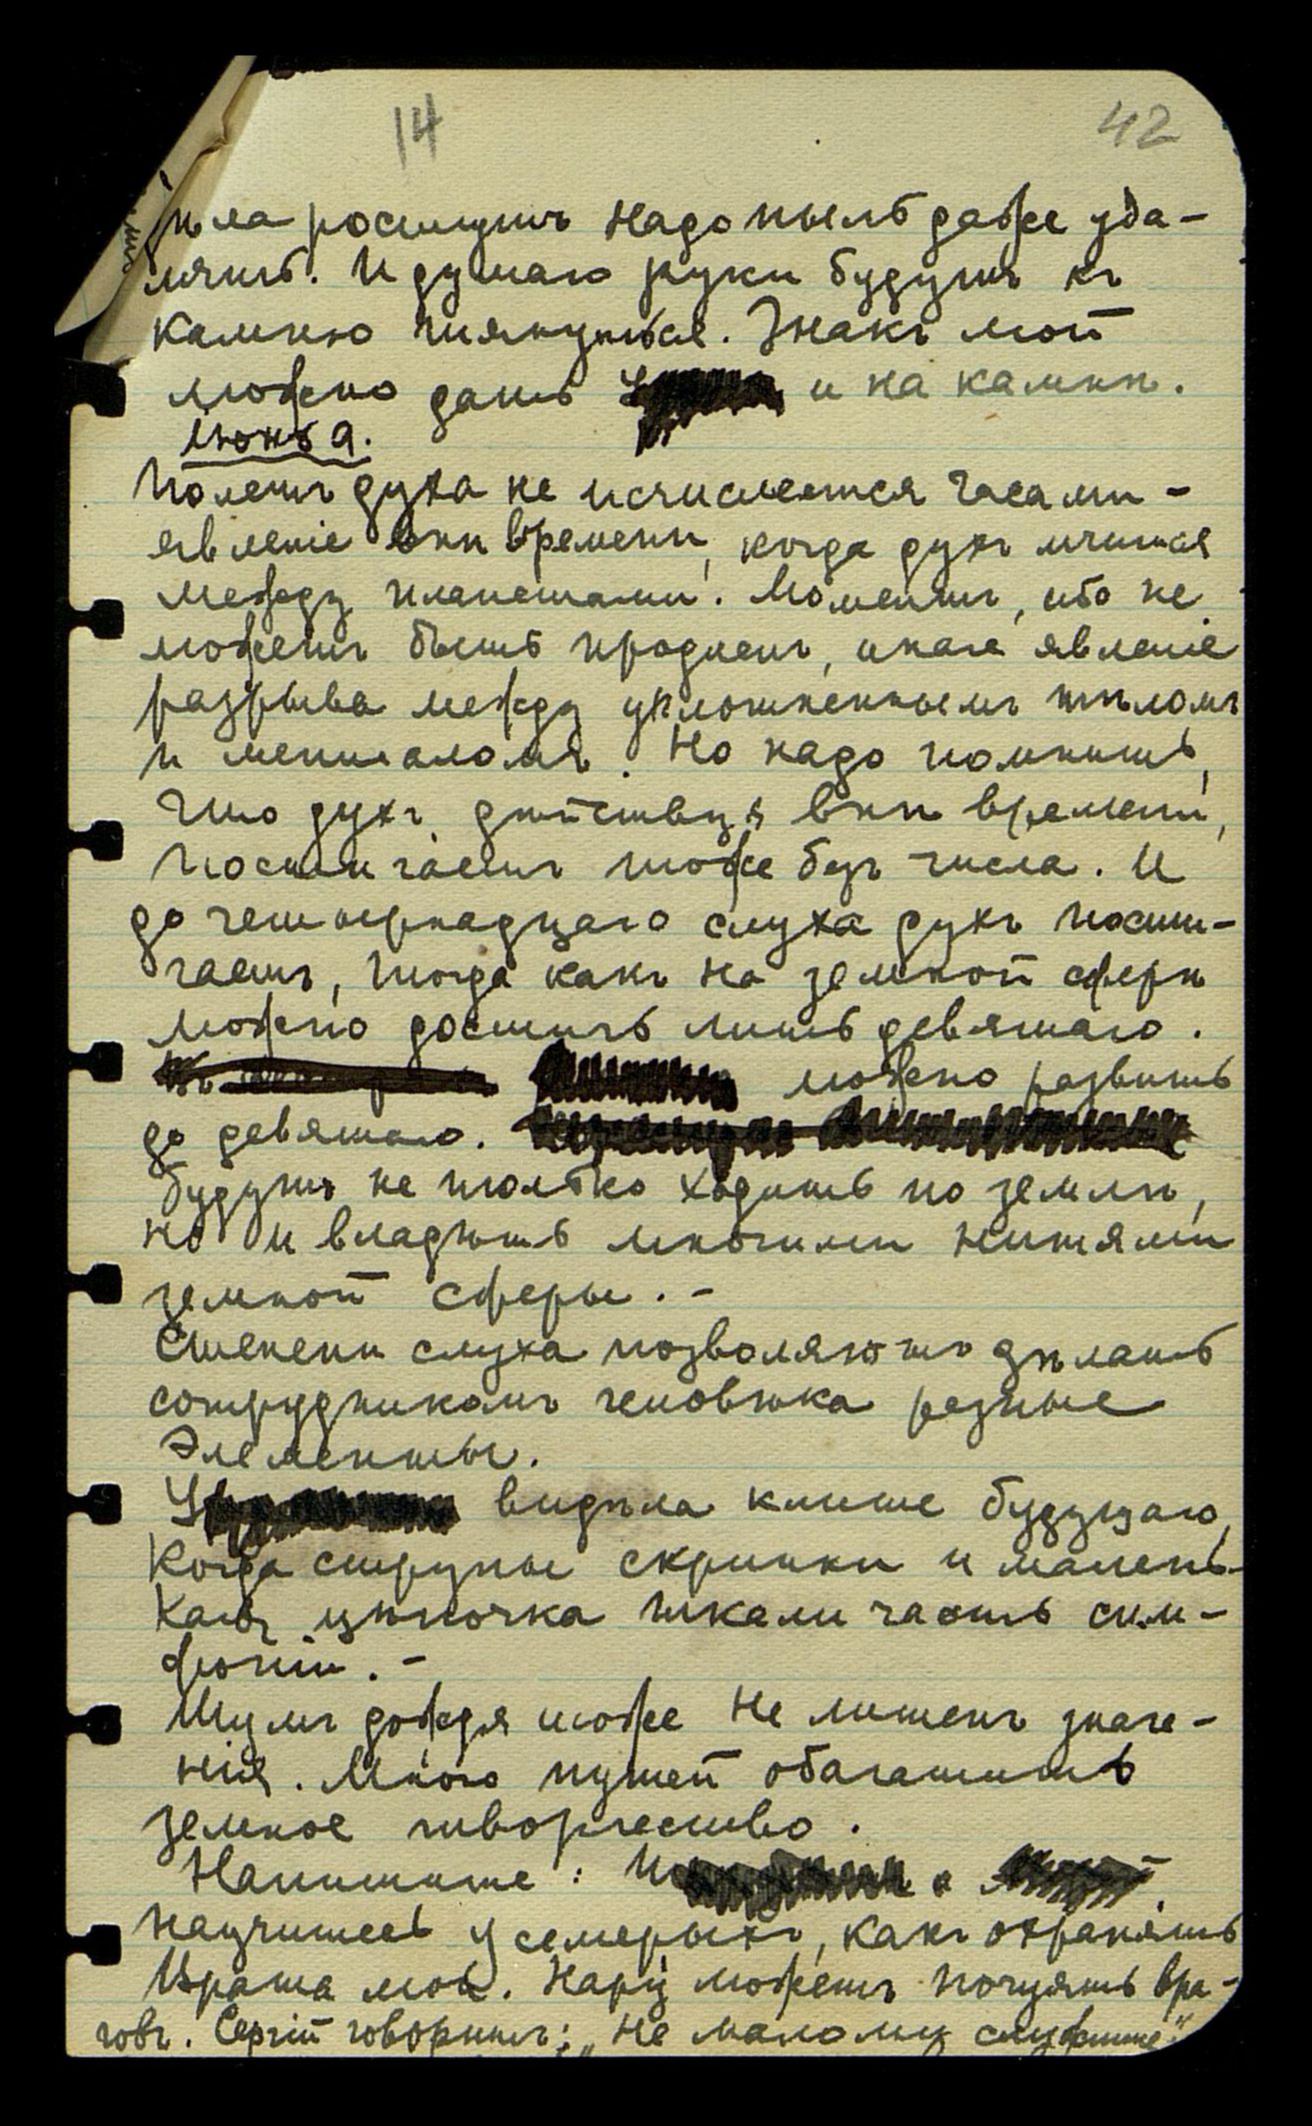 14 42
тѣла ростутъ надо пыль даже уда-
лять. И думаю руки будутъ къ
камню тянуться. Знакъ мой
можно дать и на камнѣ.
Июнь 9.
Полетъ духа не исчисляется часами –
явленіе внѣ времени, когда духъ мчится
между планетами. Моментъ, ибо не
можетъ быть продленъ, иначе явленіе
разрыва между уплотненнымъ тѣломъ
и менталомъ. Но надо помнить,
что духъ, дѣйствуя внѣ времени,
постигаетъ тоже безъ числа. И
до четырнадцаго слуха духъ пости-
гаетъ, тогда какъ на земной сферѣ
можно достичь лишь девятаго.
можно развить
до девятаго.
будутъ не только ходить по землѣ,
но и владѣть многими нитями
земной сферы. –
Степени слуха позволяютъ дѣлать
сотрудникомъ человѣка разные
элементы.
видѣла клише будущаго,
Когда струны скрипки и малень-
кая цѣпочка ткали часть сим-
фоніи. –
Шумъ дождя тоже не лишенъ значе-
нія. Много путей обагатить
земное творчество.
Напишите: и
научитесь у семерыхъ, какъ охранять
Врата мои. Нару можетъ почуять вра-
говъ. Сергій говоритъ: „Не малому служите"